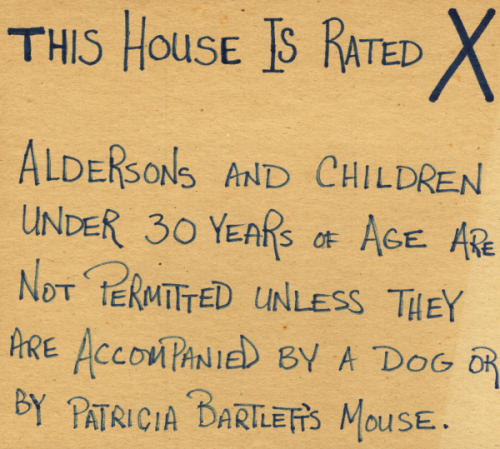 THIS HOUSE IS RATED X
ALDERSONS AND CHILDREN
UNDER 30 YEARS OF AGE ARE
NOT PERMITTED UNLESS THEY
ARE ACCOMPANIED BY A DOG OR
BY PATRICIA BARTLETT'S MOUSE.